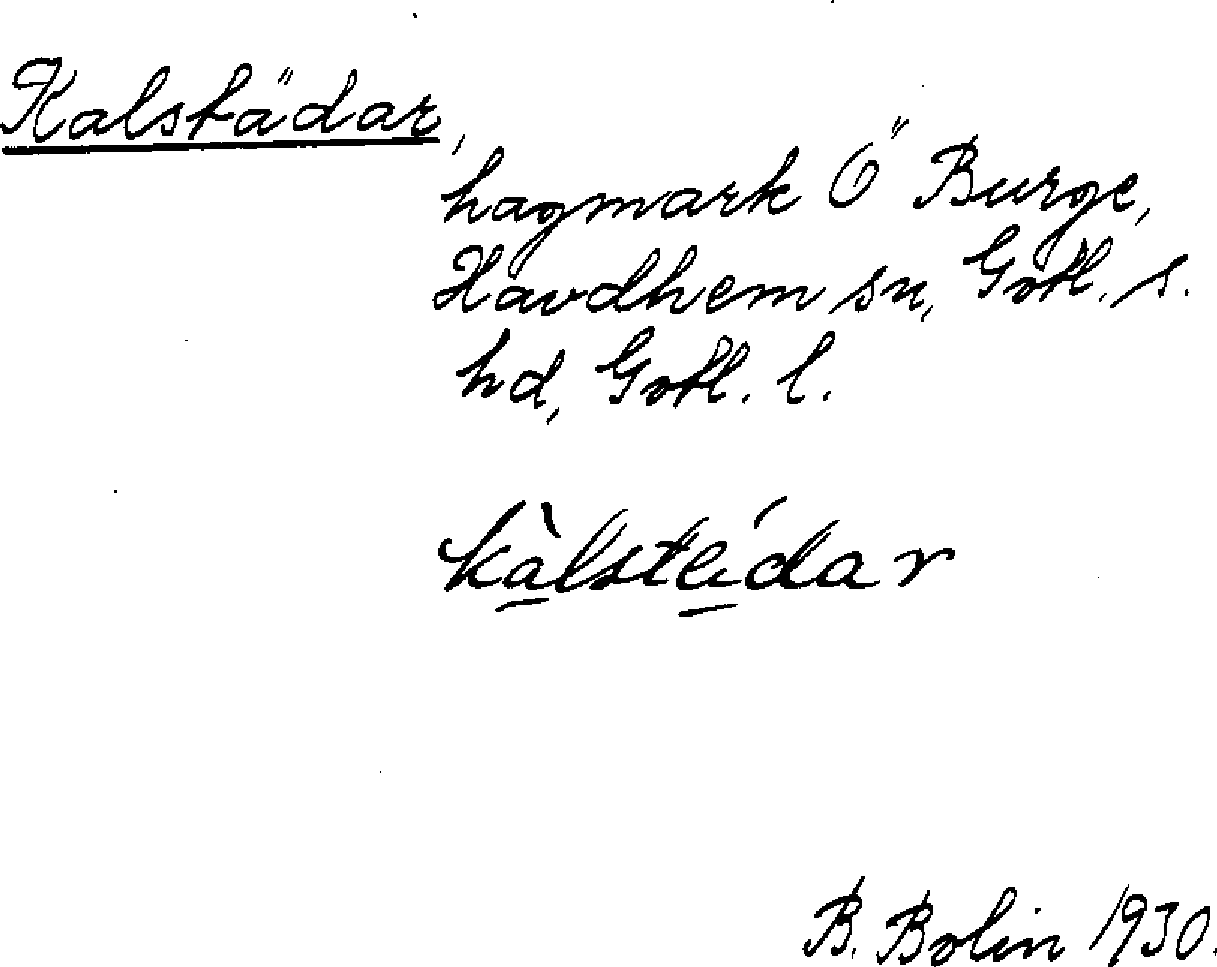 Kalstädar,
hagmark Ö Burge,
Havdhem sn, Gotl. s.
hd, Gotl. l.
kàlstédar
B. Bolin 1930.